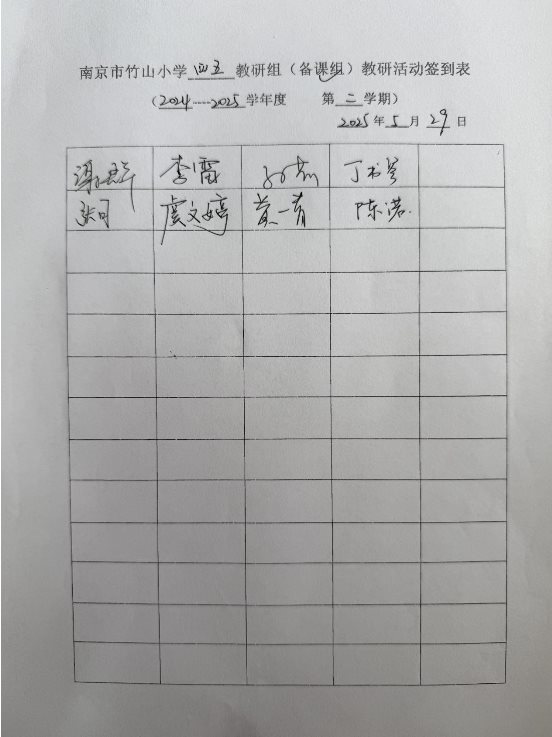 南京市竹山小学 四五 教研组（备课组）教研活动签到表
（2024----2025学年度 第二学期）
2025年5月29日
李雷 丁书
张可 虞文婷 黄一青 陈诺